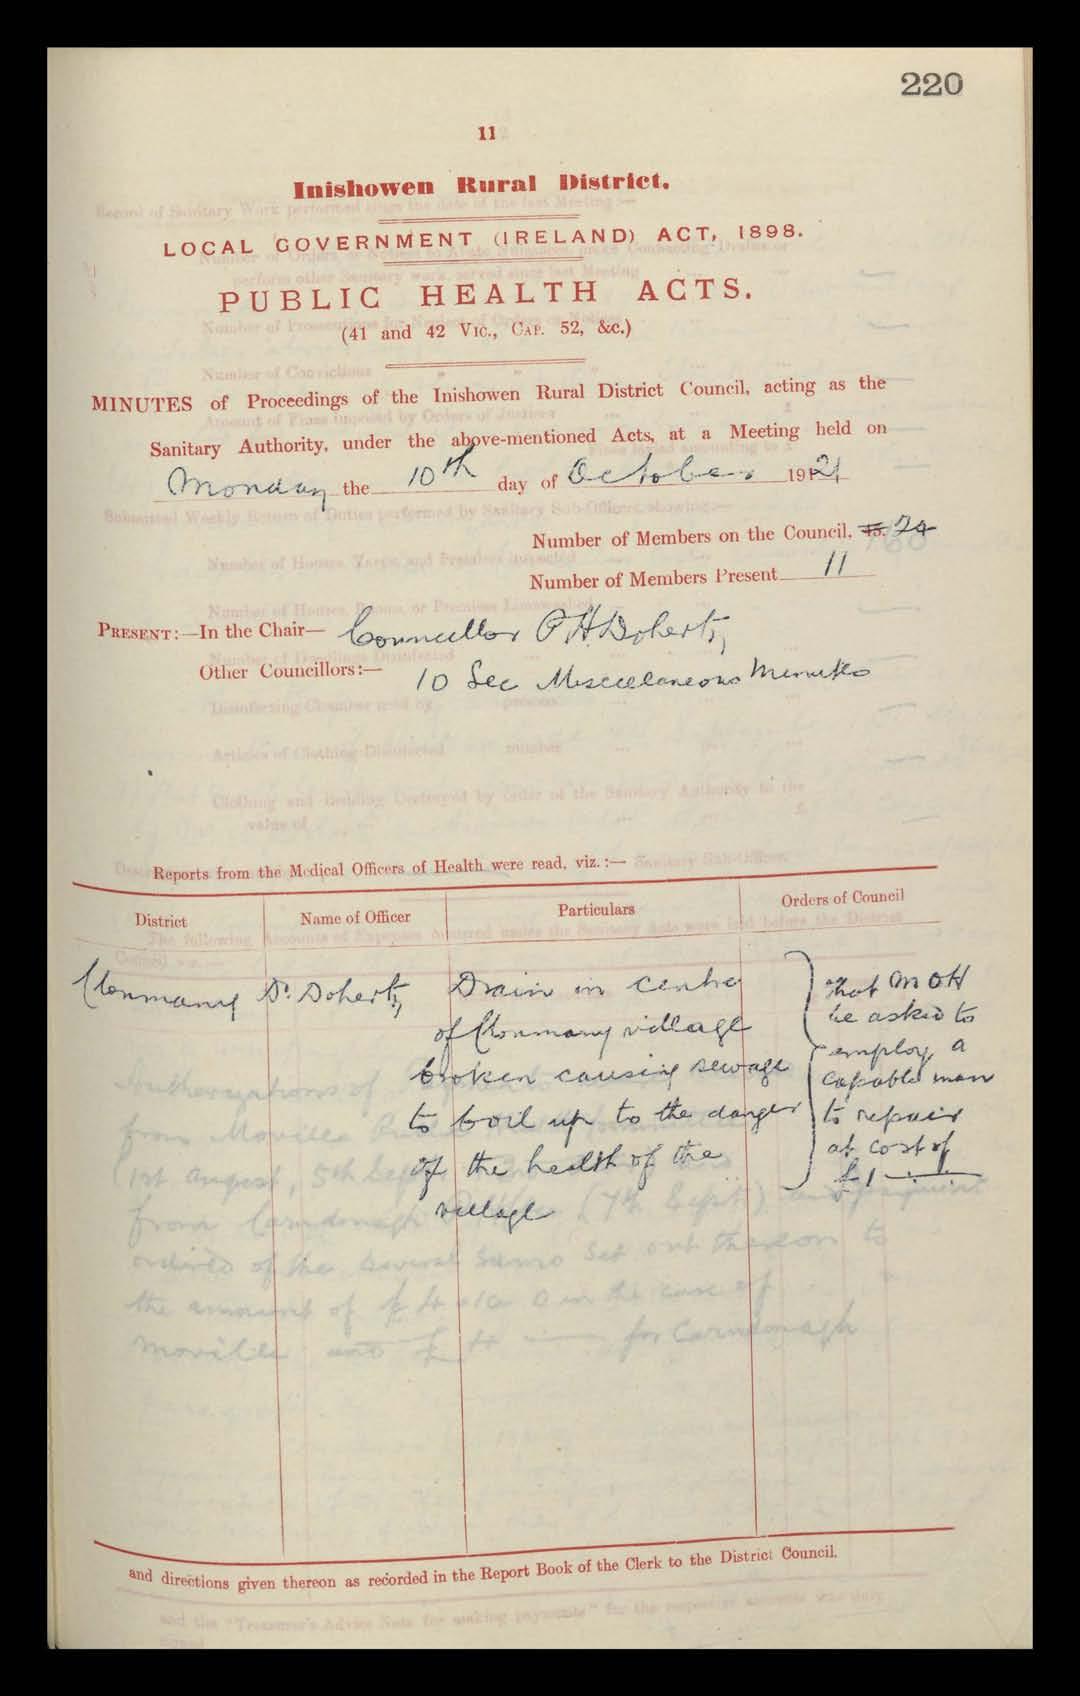 220
11
Inishowen Rural District.
LOCAL GOVERNMENT (IRELAND) ACT, 1898.
PUBLIC HEALTH ACTS.
(41 and 42 Vic., Cap. 52, &c.)
MINUTES of Proceedings of the Inishowen Rural District Council, acting as the
Sanitary Authority, under the above-mentioned Acts, at a Meeting held on
Monday the 10th day of October 1921
Number of Members on the Council, 45. 24
Number of Members Present 11
PRESENT:—In the Chair— Councillor P H Doherty
Other Councillors:— 10 See Miscellaneous Minutes
Reports from the Medical Officers of Health were read, viz.:—
District Name of Officer Particulars Orders of Council
Clonmany Dr. Doherty Drain in centre
of Clonmany village
broken causing sewage
to boil up to the danger
of the health of the
village
That M O H
be asked to
employ a
capable man
to repair
at cost of
£1
and directions given thereon as recorded in the Report Book of the Clerk to the District Council.